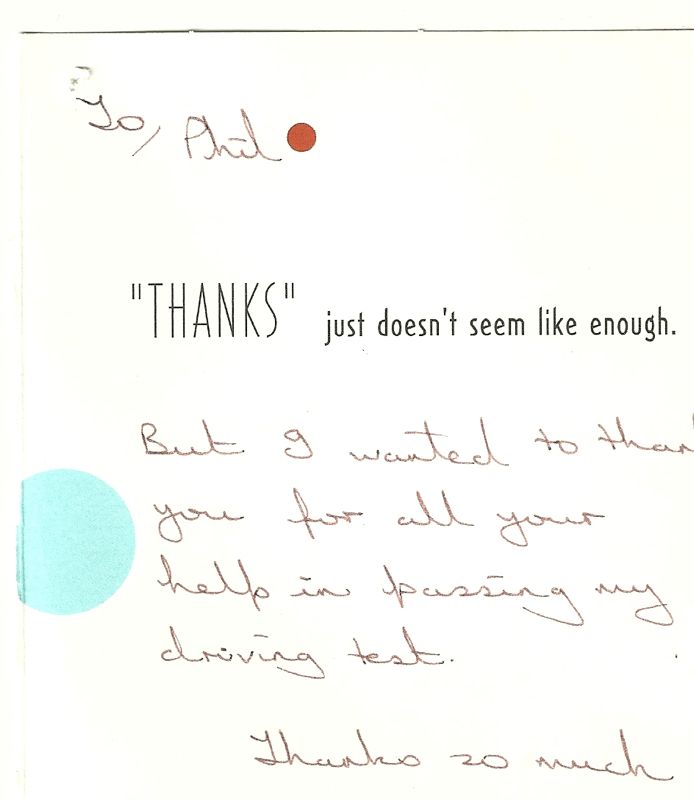 To, Phil
"THANKS" just doesn't seem like enough.
But I wanted to than
you for all your
help in passing my
driving test.
Thanks so much